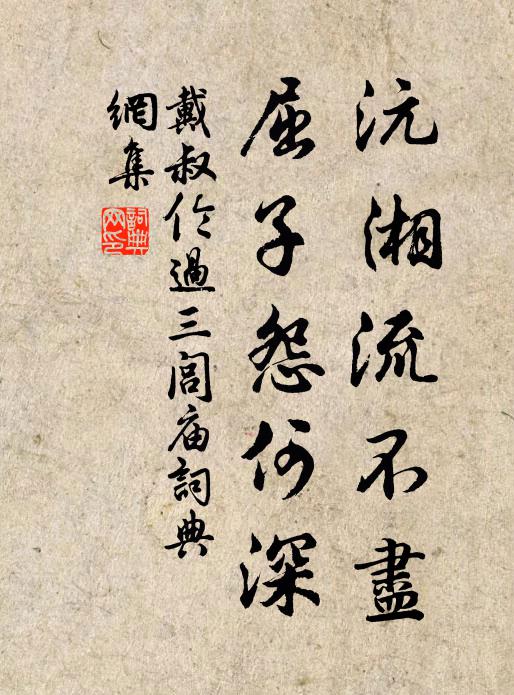 沅湘流不盡
屈子怨何深
戴叔伦過三闾庙詞典
網集
詞典網印